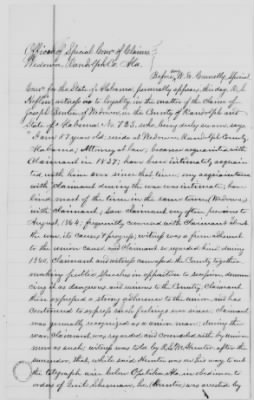 Office of Special Com'r of Claims
Wedowee, Randolph Co. Ala.
Before me W. H. Connelly, Special
Com'r for the State of Alabama, personally appears, this day, R. S.
Heflin, witness as to loyalty, in the matter of the claim of
Joseph Benton of Wedowee, in the County of Randolph and
State of Alabama No 783, who being duly sworn, says
I am 57 years old, reside at Wedowee Randolph County,
Alabama; Attorney at law, became acquainted with
Claimant in 1837; have been intimately acquain
ted with him ever since that time, my acquaintance
with claimant during the war was intimate; have
lived most of the time in the same town (Wedowee)
with Claimant; saw claimant very often previous to
August, 1864, frequently conversed with Claimant about
the war, its causes & progress; witness was a firm adherent
to the union cause and Claimant so regarded him during
1860, Claimant and witness canvassed the County together
making public speeches in opposition to secession, denoun
cing it as dangerous and ruinous to the Country, Claimant
then expressed a strong adherence to the union and has
continued to express such feelings ever since, Claimant
was generally recognized as a union man; during the
war, Claimant was regarded and consulted with by union
men as such; witness was told by R. S. M. Hunter after the
surrender, that, while said Hunter was on his way to cut
the telegraph wire below Opelika Ala in obedience to
orders of Genl. Sherman, he (Hunter) was arrested by